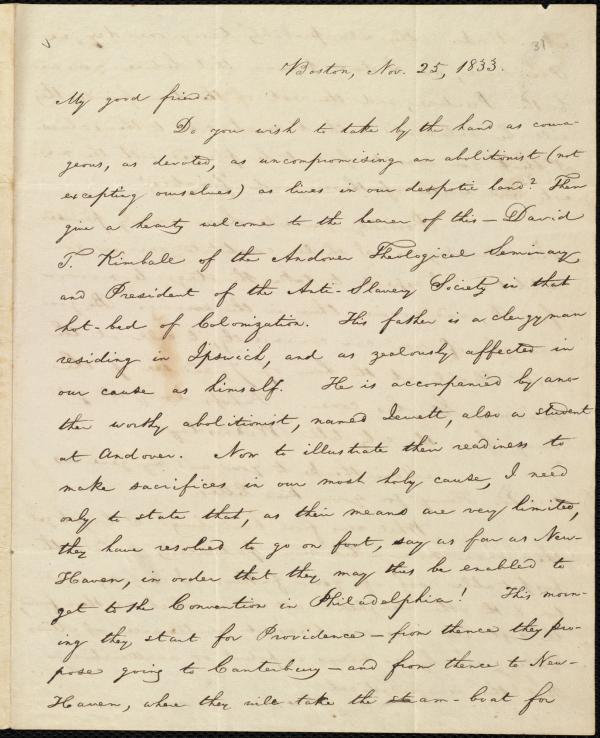 31
Boston, Nov. 25, 1833.
My good friend
Do you wish to take by the hand as coura-
geous, as devoted, as uncompromising an abolitionist (not
excepting ourselves) as lives in our despotic land? Then
give a hearty welcome to the bearer of this — David
T. Kimball of the Andover Theological Seminary
and President of the Anti-Slavery Society in that
hot-bed of Colonization. His father is a clergyman
residing in Ipswich, and as zealously affected in
our cause as himself. He is accompanied by ano-
ther worthy abolitionist, named Jewett, also a student
at Andover. Now to illustrate their readiness to
make sacrifices in our most holy cause, I need
only to state that, as their means are very limited,
they have resolved to go on foot, say as far as New-
Haven, in order that they may thus be enabled to
get to the Convention in Philadelphia! This morn-
ing they start for Providence — from thence they pro-
pose going to Canterbury — and from thence to New-
Haven, where they will take the steam-boat for